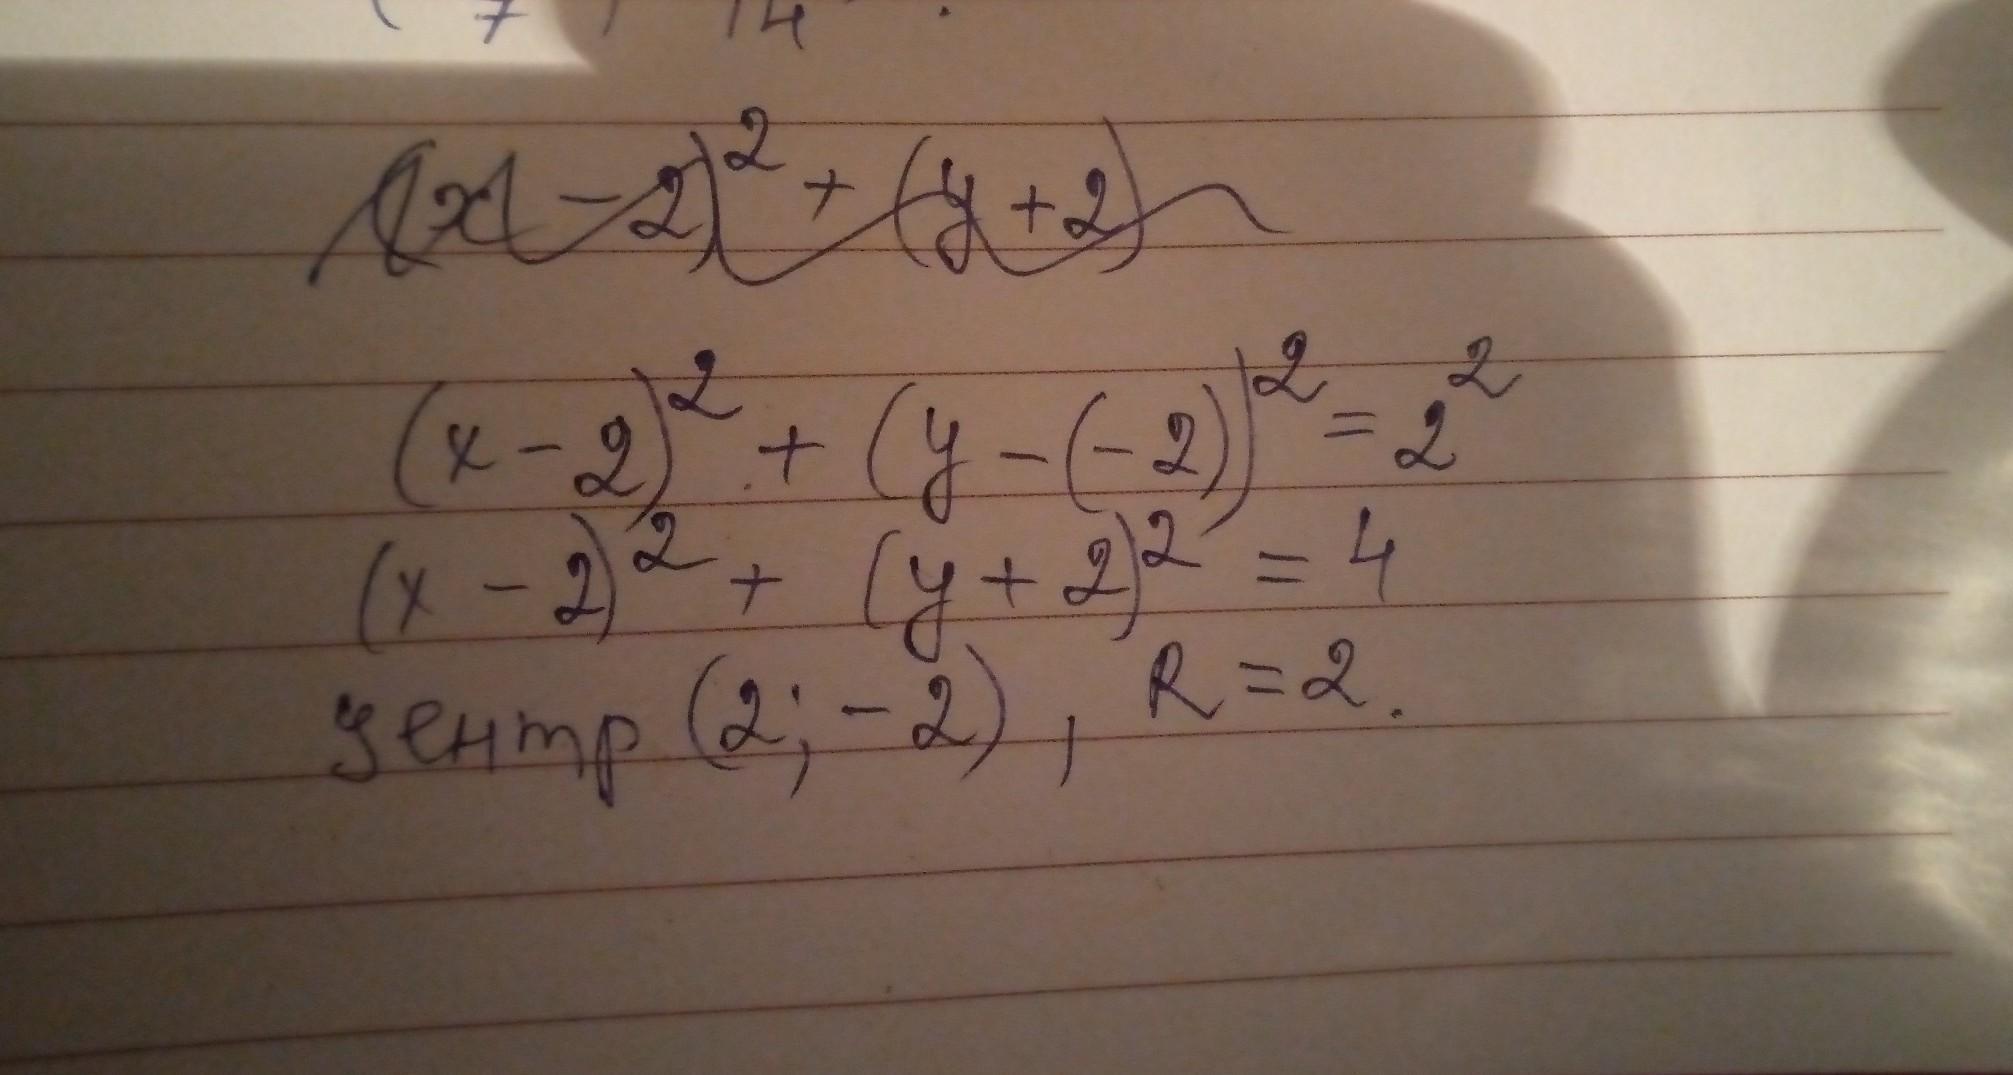 7 14
(x - 2)² + (y + 2)
(x - 2)² + (y - (-2))² = 2²
(x - 2)² + (y + 2)² = 4
центр (2; - 2), R = 2.